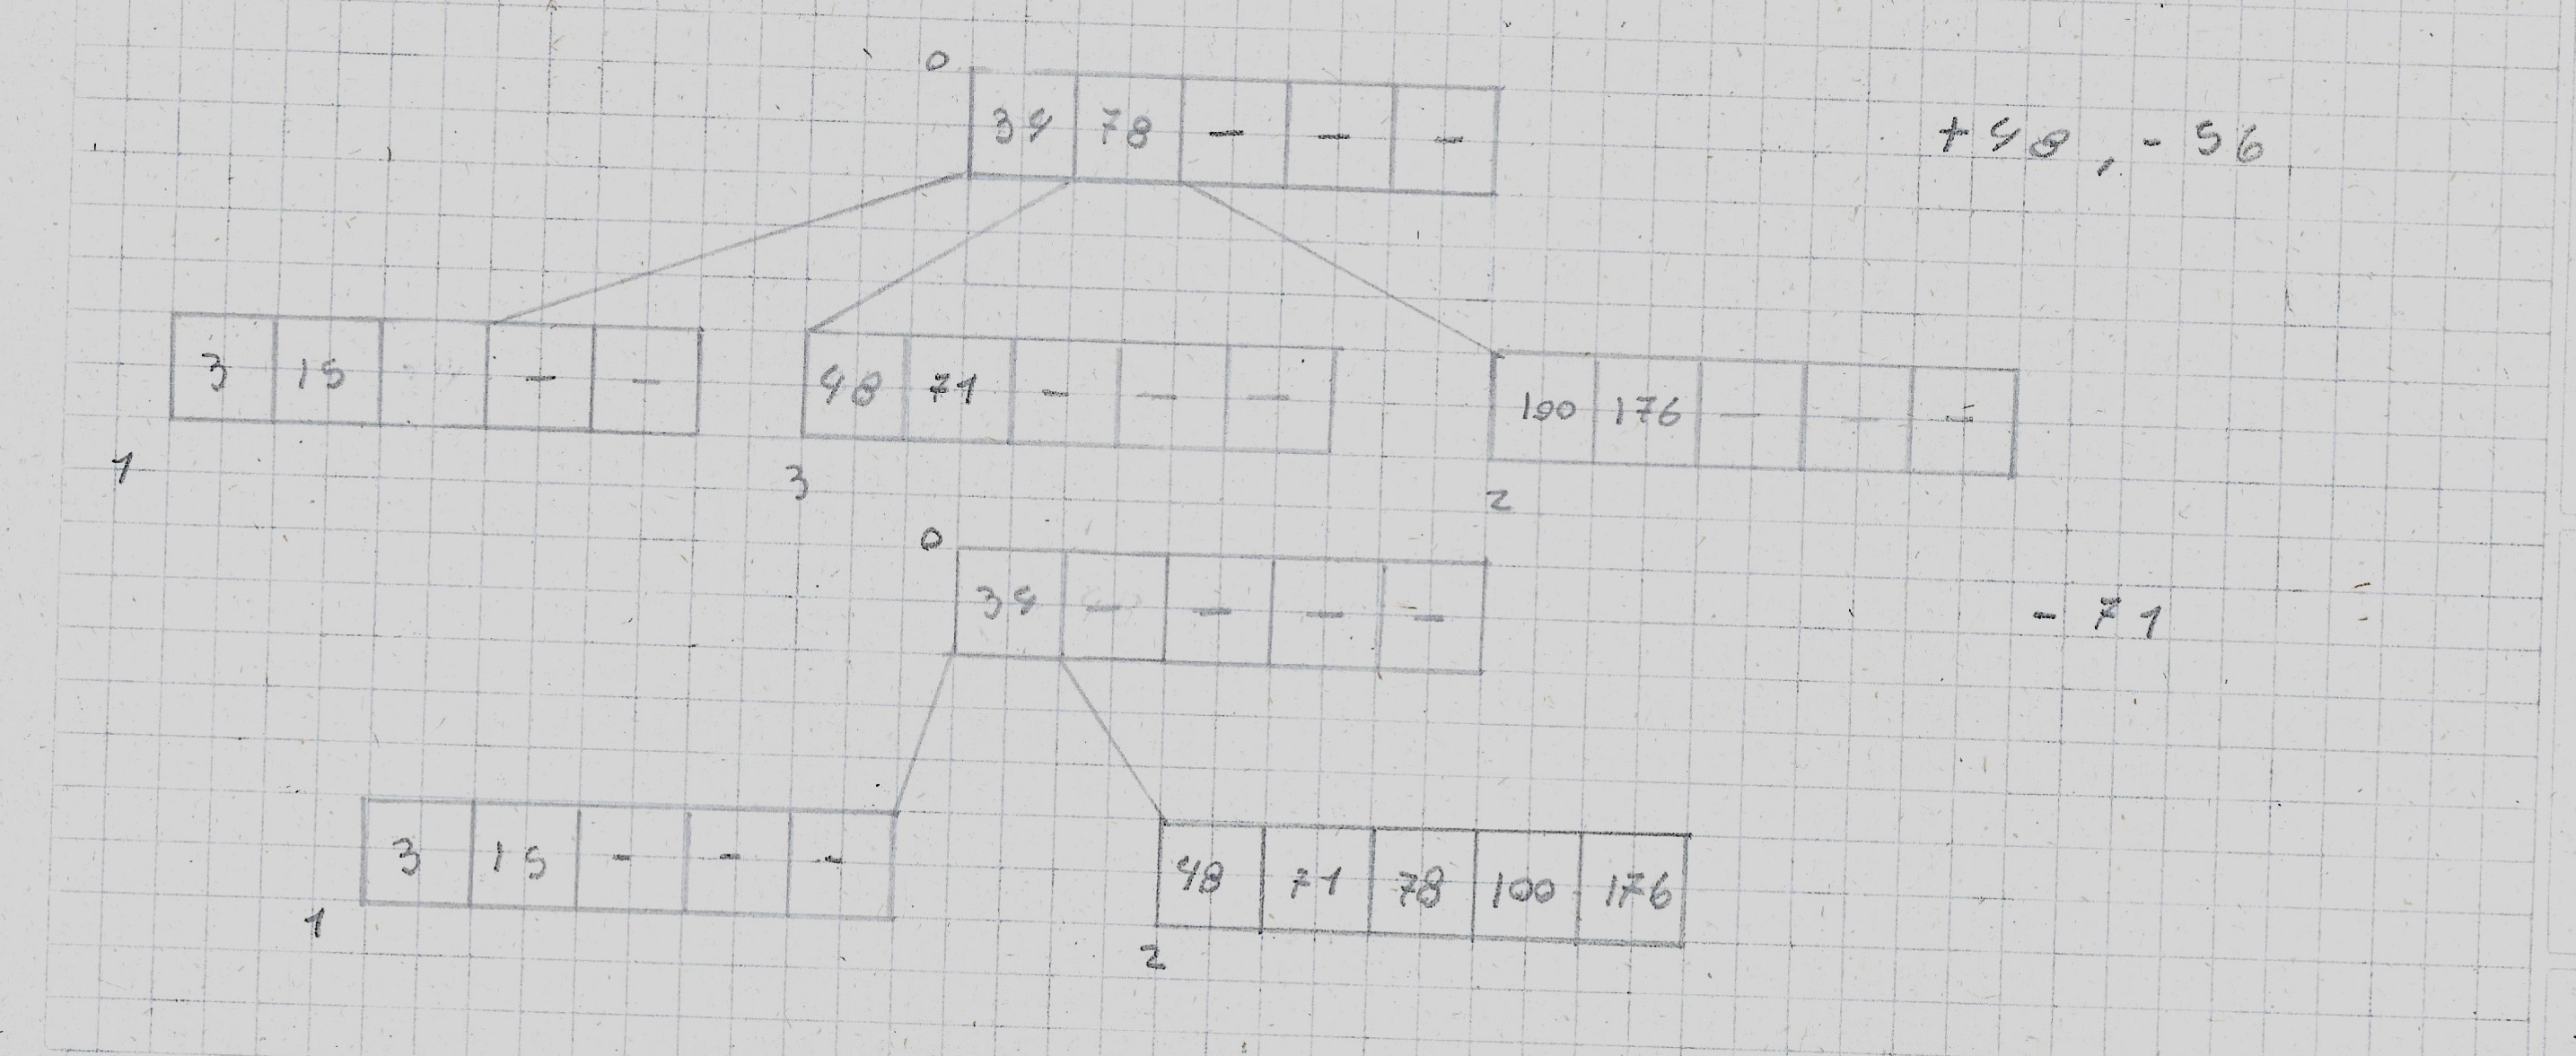 0
34 78 - - - +48, - 56
3 15 - -
48 71 - - -
100 176 - - -
1 3 2
0
34 - - - - - 71
3 15 - - -
48 71 78 100 176
1 2